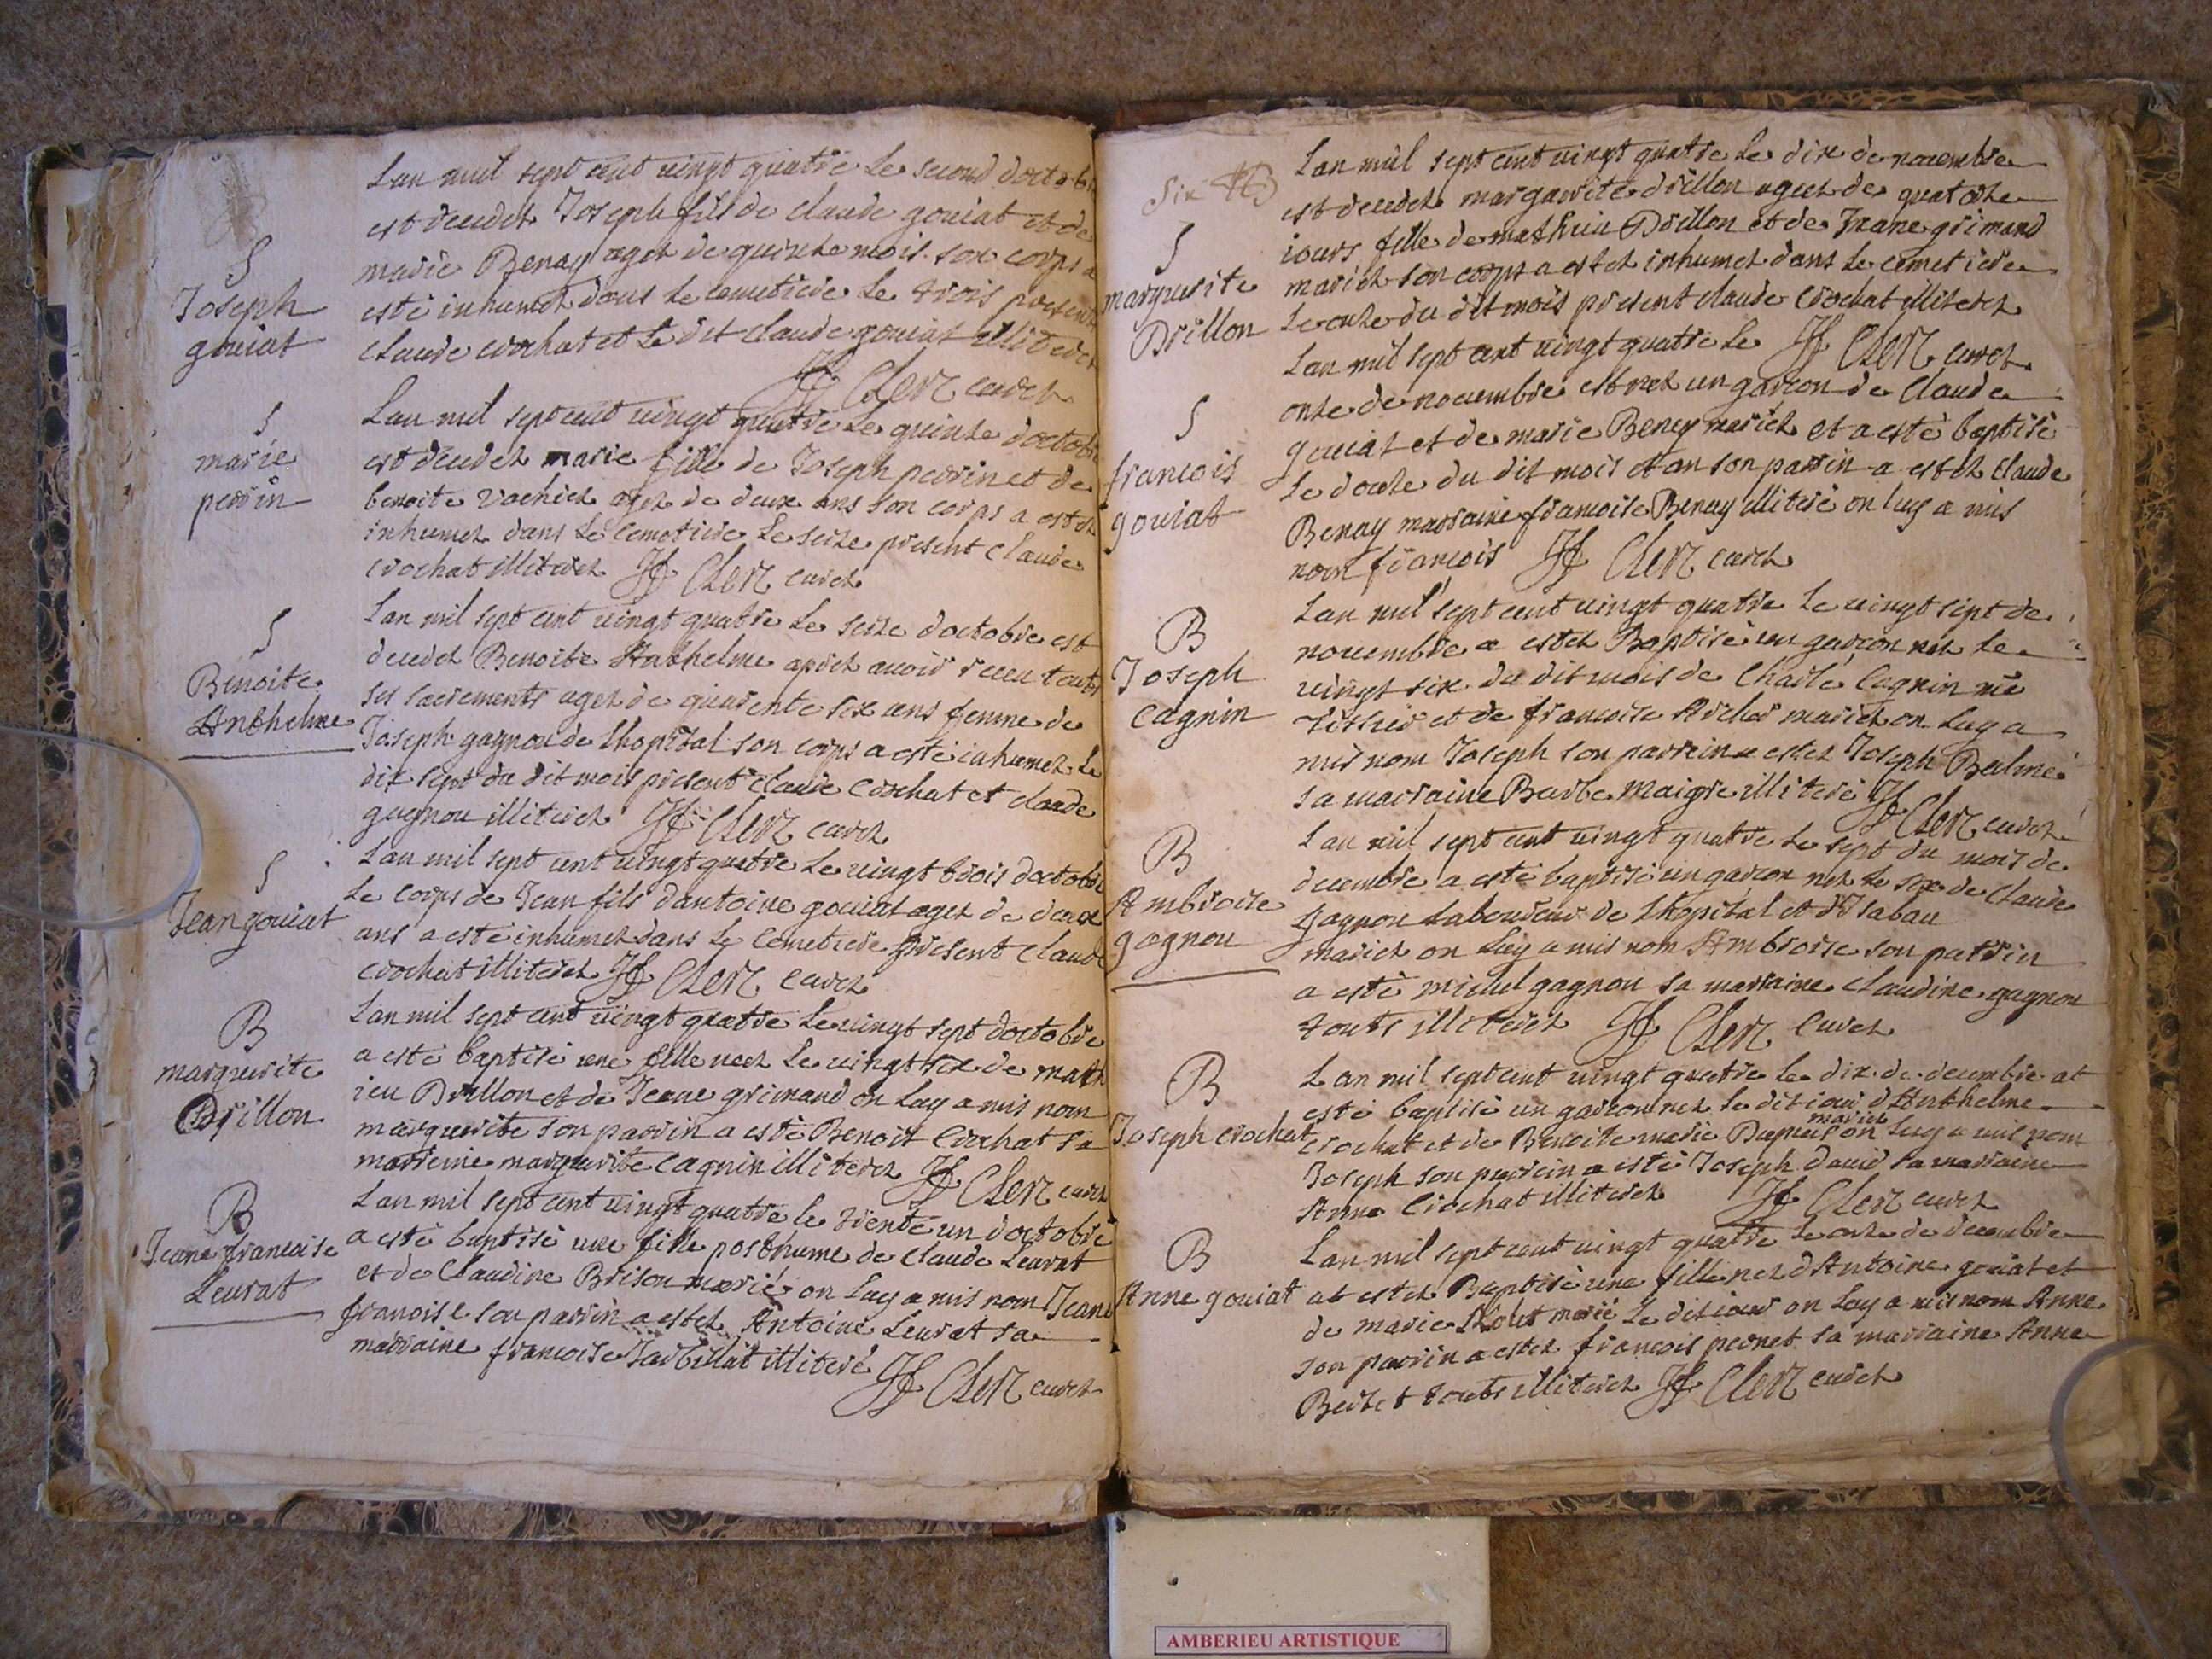 S
Joseph
gouiat
Lan mil sept cent vingt quatre Le second doctob
est decedez Joseph fils de claude gouiat et de
marie Benay agez de quinze mois son corps a
esté inhumez dans Le cemetiere Le trois present
claude crochat et Le dit claude gouiat illiterez
Clerc curez
S
marie
perrin
Lan mil sept cent vingt quatre Le quinze doctobre
est decedez marie fille de Joseph perrin et de
benoite vachiez agez de deux ans son corps a estez
inhumez dans Le Cemetiere Le seize present claude
crochat illiterez Clerc curez
S
Benoite
Anthelme
Lan mil sept cent vingt quatre Le seize doctobre est
decedez Benoite Anthelme aprez avoir receu touts
ses sacrements agez de quarente six ans femme de
Joseph gagnou de Lhopital son corps a esté inhumez Le
dix sept du dit mois present claude Crochat et claude
gagnou illiterez Clerc curez
S
Jean gouiat
Lan mil sept cent vingt quatre Le vingt trois doctobre
Le corps de Jean fils dantoine gouiat agez de deux
ans a esté inhumez dans Le Cemetiere present claude
crochat illiterez Clerc curez
B
marguerite
Drillon
Lan mil sept cent vingt quatre Le vingt sept doctobre
a esté baptisé une fille nez Le vingt six de math
ieu Drillon et de Jeane grimand on Luy a mis nom
marguerite son parrin a esté Benoit Crochat sa
marreine marguerite Cagnin illiterez Clerc curez
B
Jeane francoise
Leurat
Lan mil sept cent vingt quatre le trente un doctobre
a esté baptisé une fille posthume de claude Leurat
et de Claudine Brison marié on Luy a mis nom Jeane
francoise son parrin a estez Antoine Leurat sa
marraine francoise illiteré
Clerc curez
Six
S
marguerite
Drillon
Lan mil sept cent vingt quatre Le dix de novembre
est decedez margarite drillon agez de quatorze
iours fille de mathieu Drillon et de Jeane grimand
mariez son corps a estez inhumez dans Le cemetiere
Le onze du dit mois present claude Crochat illiterez
Clerc curez
S
francois
gouiat
Lan mil sept cent vingt quatre Le
onze de novembre est nez un garcon de Claude
gouiat et de marie Benay mariez et a esté baptisé
Le douze du dit mois et an son parrin a estez claude
Benay marraine francoise Benay illiteré on luy a mis
nom francois Clerc curez
B
Joseph
Cagnin
Lan mil sept cent vingt quatre Le vingt sept de
novembre a estez Baptisé un garcon nez Le
vingt six du dit mois de Charle Cagnin me
et de francoise Archer mariez on Luy a
mis nom Joseph son parrein a estez Joseph Balme
sa marraine Barbe maigre illiteré Clerc curez
B
Ambroise
gagnou
Lan mil sept cent vingt quatre Le sept du mois de
decembre a esté baptisé un garcon nez Le six de Claude
gagnou Laboureur de Lhopital et d'Isabau
mariez on Luy a mis nom Ambroise son patrin
a esté michel gagnou sa marraine claudine gagnou
touts illiterez Clerc Curez
B
Joseph crochat
Lan mil sept cent vingt quatre Le dix de decembre at
esté baptisé un garcon nez le dit iour d'Anthelme
crochat et de Benoite marie mariez on Luy a mis nom
Joseph son parrein a esté Joseph david sa marraine
Anne Crochat illiterez Clerc curez
B
Anne gouiat
Lan mil sept cent vingt quatre Le onze de decembre
at estez Baptisé une fille nez d'Antoine gouiat et
de marie marié Le dit iour on Luy a mis nom Anne
son parrin a estez francois pernet sa marraine Anne
touts illiterez Clerc curez
AMBERIEU ARTISTIQUE